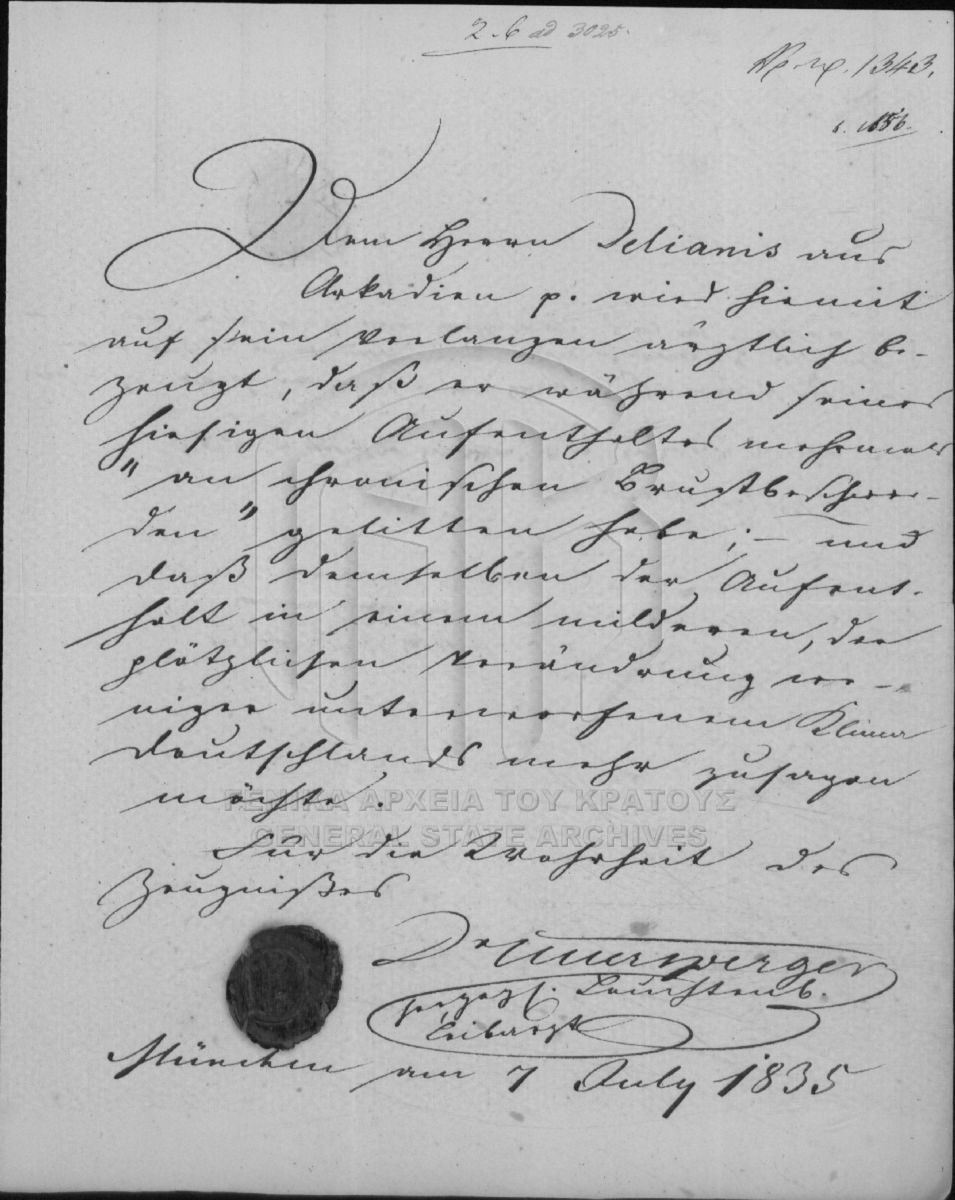 2.6 ad 3025.
1343.
Dem Herrn Delianis aus
Arkadien p. wird hiemit
auf sein Verlangen ärztlich be-
zeugt, daß er während seines
hiesigen Aufenthaltes mehrmals
"an chronischen Brustbeschwer-
den" gelitten habe; – und
daß demselben der Aufent-
halt in einem milderen, der
plötzlichen Verändrung we-
niger unterworfenem Klima
Deutschlands mehr zusagen
möchte.
Für die Wahrheit des
Zeugnißes
ΓΕΝΙΚΑ ΑΡΧΕΙΑ ΤΟΥ ΚΡΑΤΟΥΣ
GENERAL STATE ARCHIVES
Dr
herzogl. Leuchtenb.
Leibarzt
München am 7 July 1835